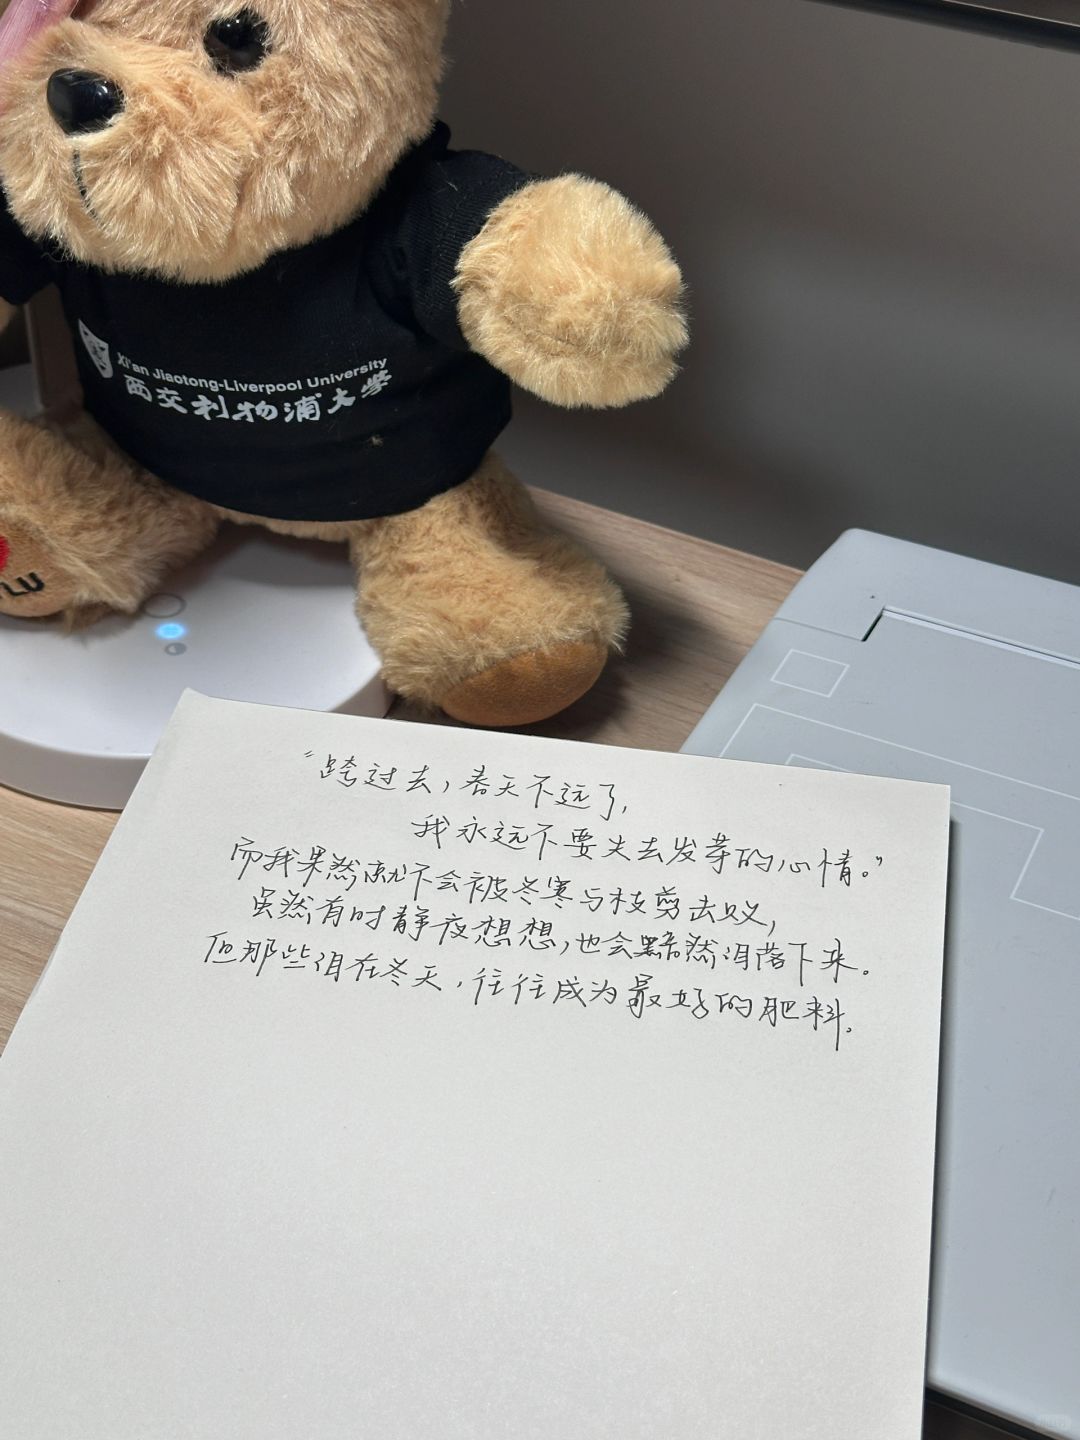 Xi'an Jiaotong-Liverpool University
西交利物浦大學
LU
“跨过去,春天不远了,
我永远不要失去发芽的心情。”
而我果然就不会被冬寒与枝剪击败,
虽然有时静夜想想,也会黯然泪落下来。
但那些泪在冬天,往往成为最好的肥料。